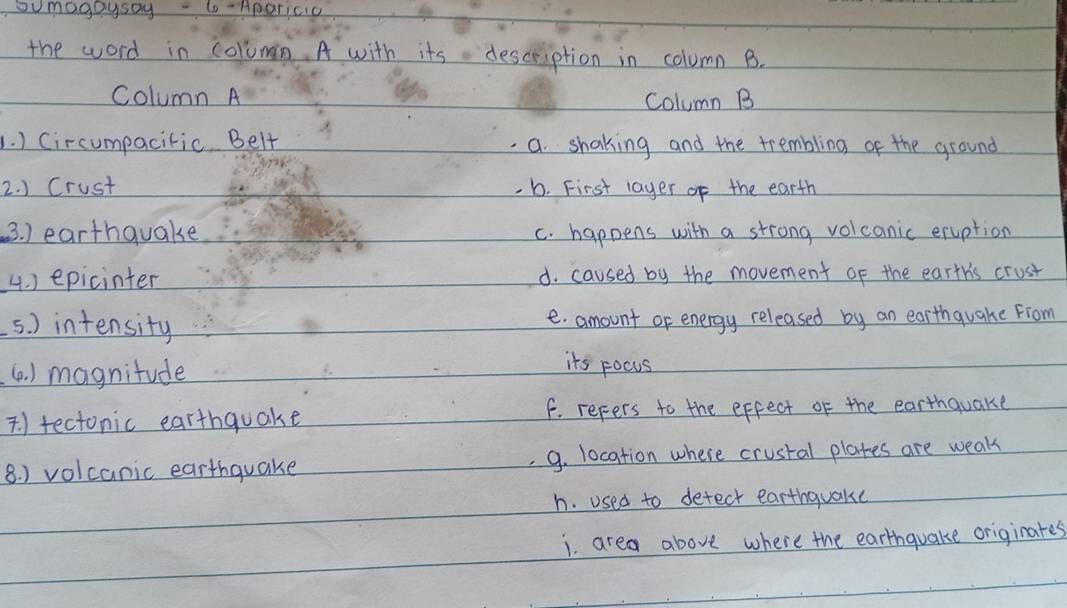 Sumagaysay - 6 - Aparicio
the word in column A with its description in column B.
Column A
Column B
1.) Circumpacific Belt
a. shaking and the trembling of the ground
2.) Crust
b. First layer of the earth
3.) earthquake
c. happens with a strong volcanic eruption
4.) epicinter
d. caused by the movement of the earth's crust
5.) intensity
e. amount of energy released by an earthquake From
6.) magnitude
its focus
7.) tectonic earthquake
f. refers to the effect of the earthquake
8.) volcanic earthquake
g. location where crustal plates are weak
h. used to detect earthquake
i. area above where the earthquake originates